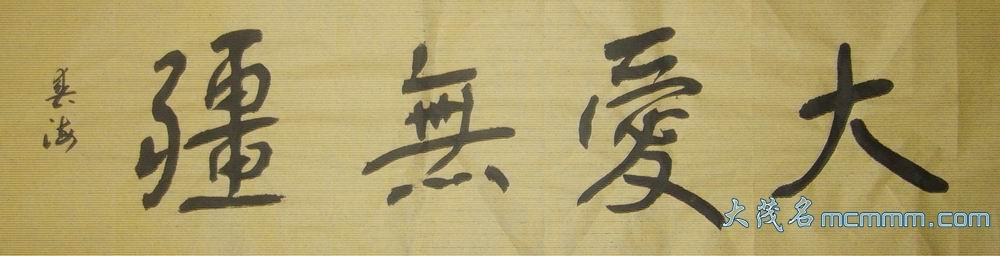 大愛無疆
春海
大茂名mcmmm.com